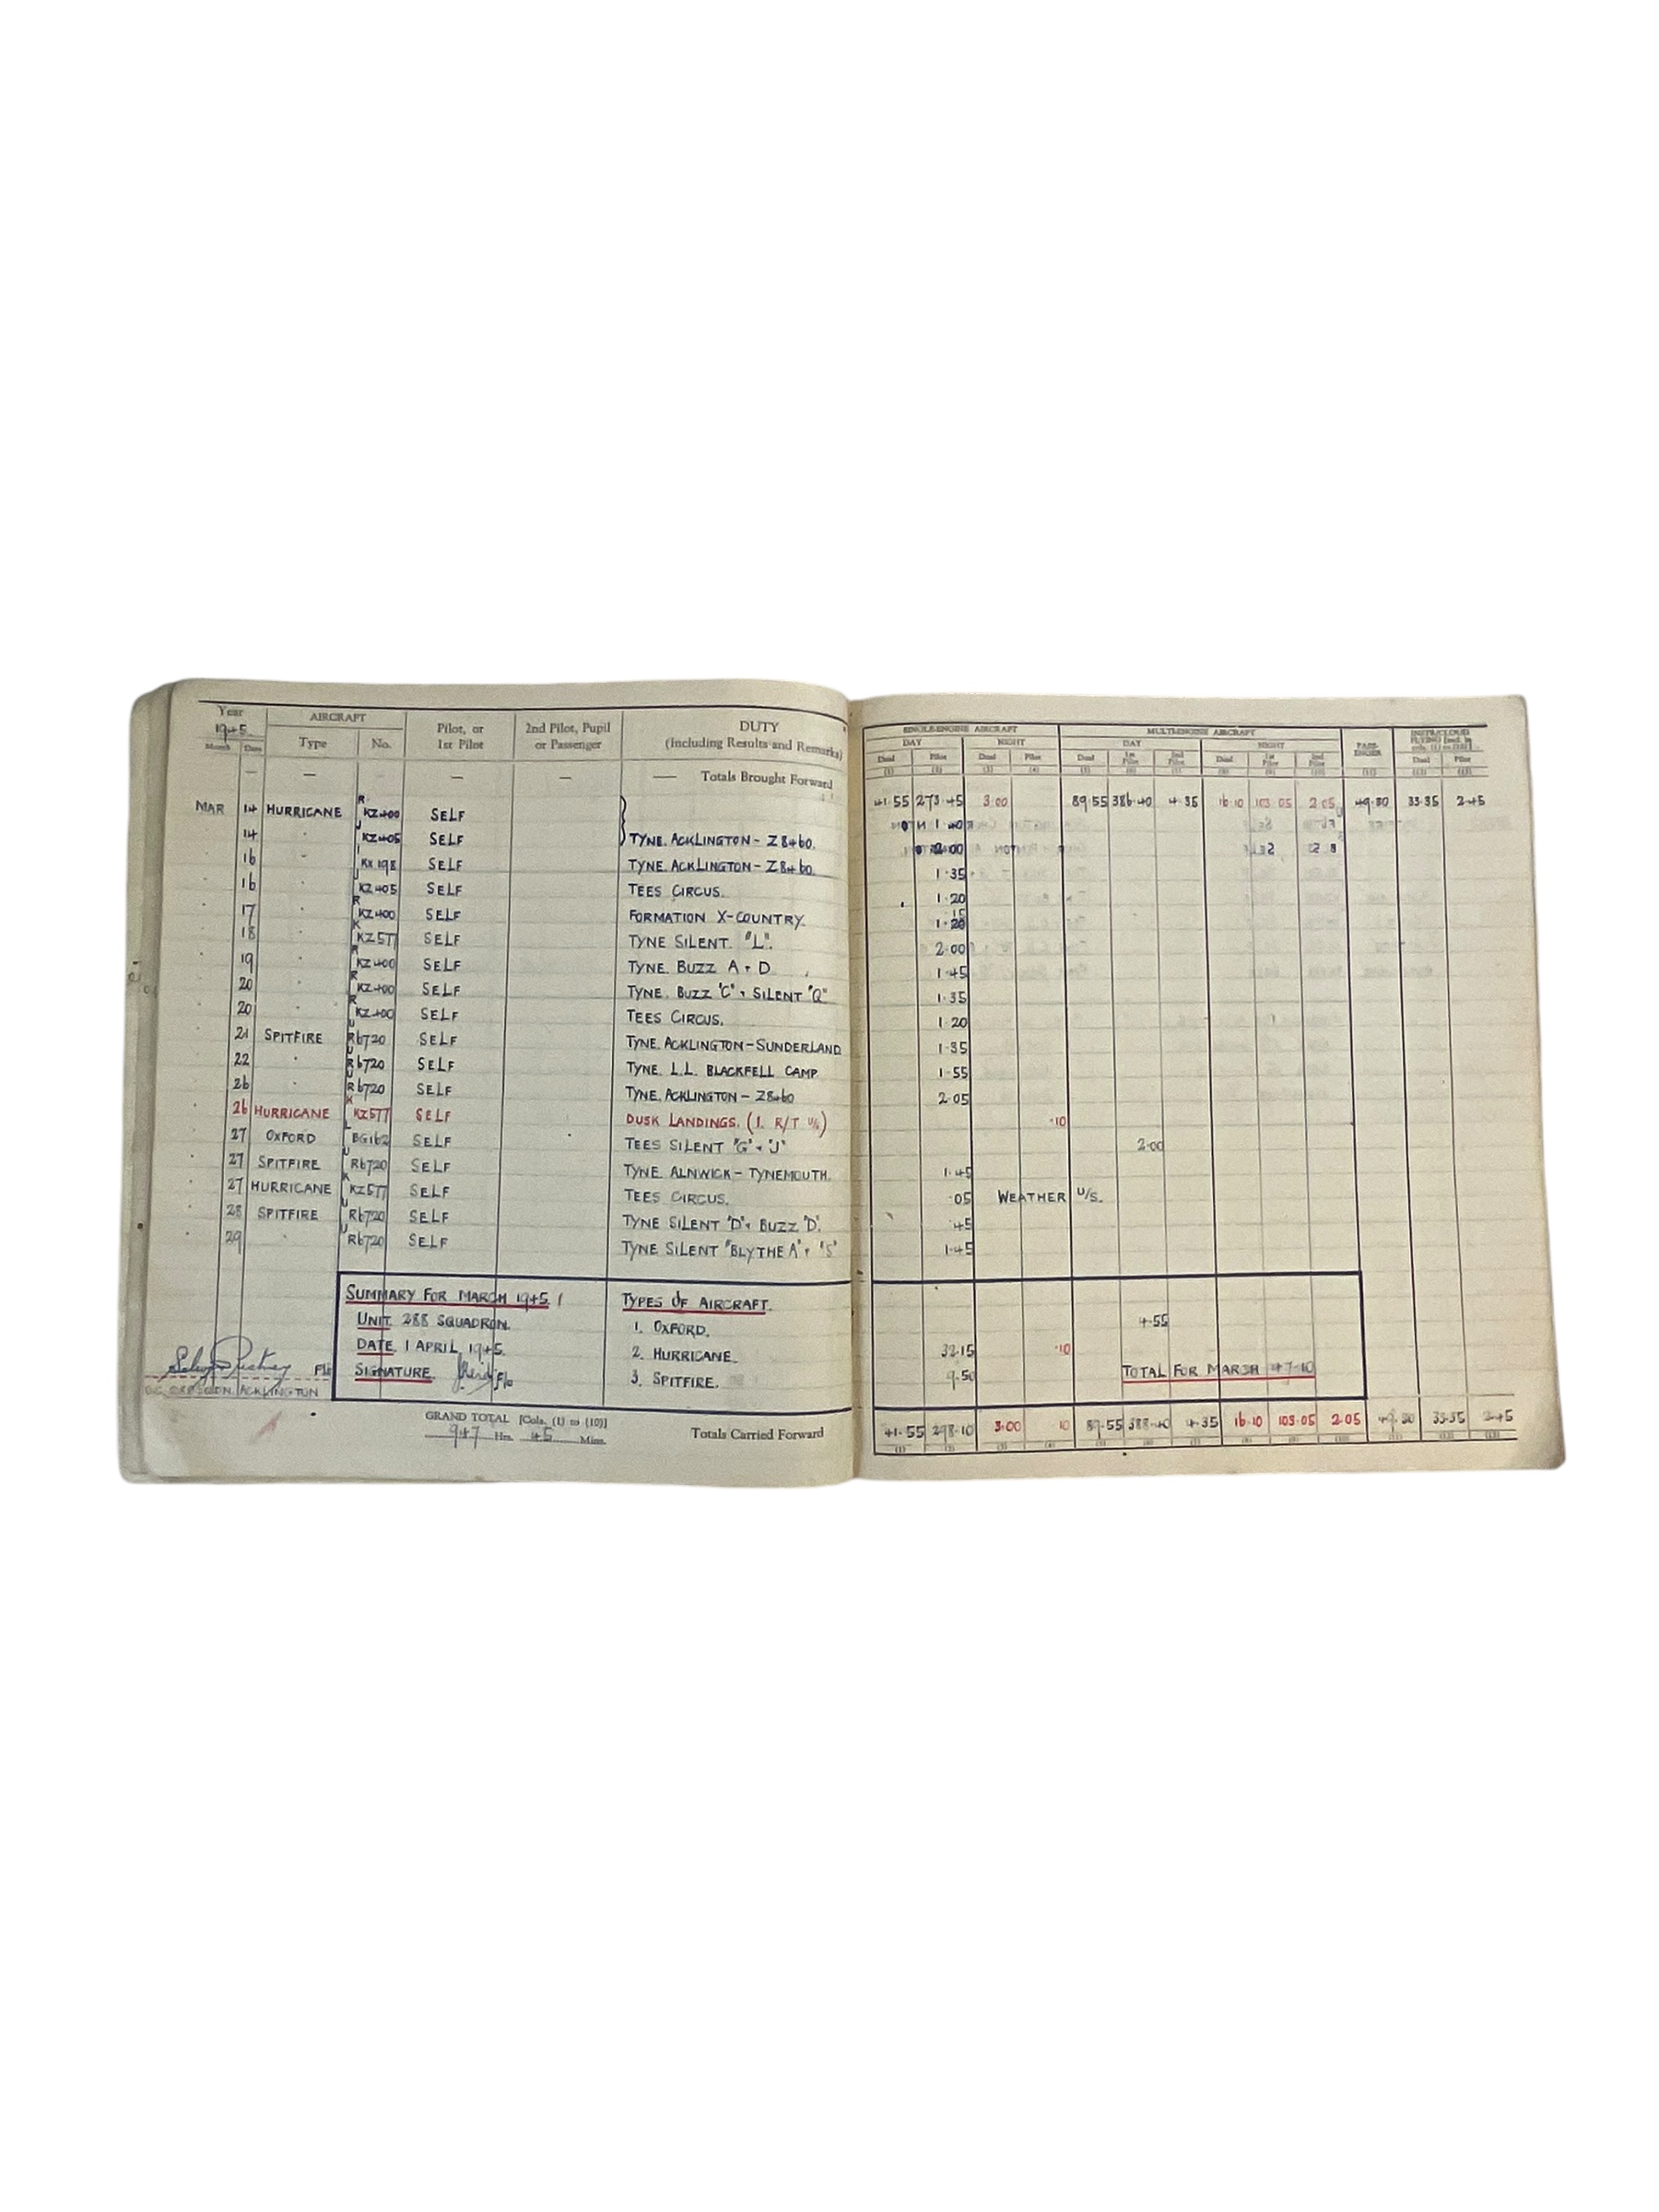 Year 1945. AIRCRAFT Pilot, or 1st Pilot 2nd Pilot, Pupil or Passenger DUTY (Including Results and Remarks) SINGLE-ENGINE AIRCRAFT MULTI-ENGINE AIRCRAFT PASSENGER
Month Date Type No. DAY NIGHT DAY NIGHT
Dual Pilot Dual Pilot Dual 1st Pilot 2nd Pilot Dual 1st Pilot 2nd Pilot Dual Pilot
(1) (2) (3) (4) (5) (6) (7) (8) (9) (10) (11) (12) (13)
— — — — — Totals Brought Forward 41.55 273.45 3.00 89.55 386.40 4.35 16.10 103.05 2.05 49.30 33.35 2.45
MAR 14 HURRICANE R KZ400 SELF 1.40
14 " U KZ405 SELF TYNE. ACKLINGTON – Z8460. 2.00
16 " I KX198 SELF TYNE. ACKLINGTON – Z8460. 1.35
16 " U KZ405 SELF TEES CIRCUS. 1.20
17 " R KZ400 SELF FORMATION X-COUNTRY. 1.20 15
18 " K KZ577 SELF TYNE SILENT. "L". 2.00
19 " R KZ400 SELF TYNE. BUZZ A + D 1.45
20 " R KZ400 SELF TYNE. BUZZ 'C' + SILENT "Q" 1.35
20 " R KZ400 SELF TEES CIRCUS. 1.20
21 SPITFIRE U R6720 SELF TYNE. ACKLINGTON – SUNDERLAND 1.35
22 " U R6720 SELF TYNE. L.L. BLACKFELL CAMP 1.55
26 " U R6720 SELF TYNE. ACKLINGTON – Z8460 2.05
26 HURRICANE K KZ577 SELF DUSK LANDINGS. (1. R/T U/S) .10
27 OXFORD L BG162 SELF TEES SILENT "G" + "J" 2.00
27 SPITFIRE U R6720 SELF TYNE. ALNWICK – TYNEMOUTH. 1.45
27 HURRICANE K KZ577 SELF TEES CIRCUS. .05 WEATHER U/S.
28 SPITFIRE U R6720 SELF TYNE SILENT 'D' + BUZZ 'D'. .45
29 " U R6720 SELF TYNE SILENT "BLYTHE A" + "S" 1.45
SUMMARY FOR MARCH 1945. TYPES OF AIRCRAFT.
UNIT. 288 SQUADRON. 1. OXFORD. 4.55
DATE. 1 APRIL, 1945. 2. HURRICANE. 32.15 .10
SIGNATURE. F/O 3. SPITFIRE. 9.50 TOTAL FOR MARCH 47.10
SQDN. ACKLINGTON
GRAND TOTAL [Cols. (1) to (10)]
947 Hrs. 45 Mins. Totals Carried Forward 41.55 298.10 3.00 10 89.55 388.40 4.35 16.10 103.05 2.05 49.30 33.35 2.45
(1) (2) (3) (4) (5) (6) (7) (8) (9) (10) (11) (12) (13)